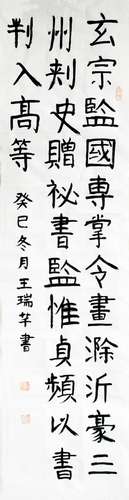 玄宗監國專掌令畫滁沂豪三
州刾史贈祕書監惟貞頻以書
判入高等
癸巳冬月王瑞芊書